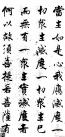 當生如是心我應滅度一
切眾生滅度一切眾生已
而無有一眾生實滅度者
何以故須菩提若菩薩